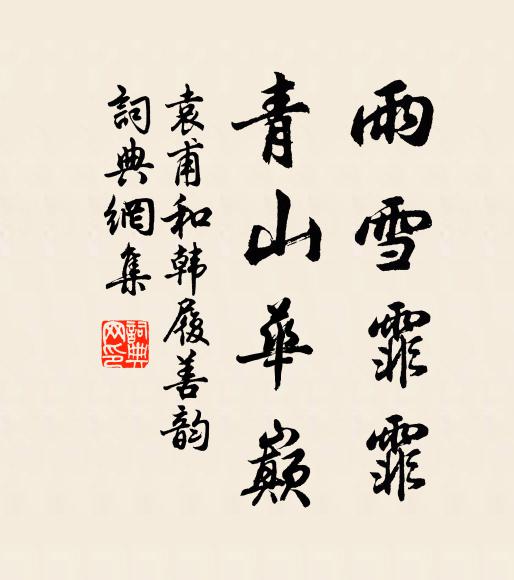 雨雪霏霏
青山華巅
袁甫和韩履善韵
詞典網集
詞典网印